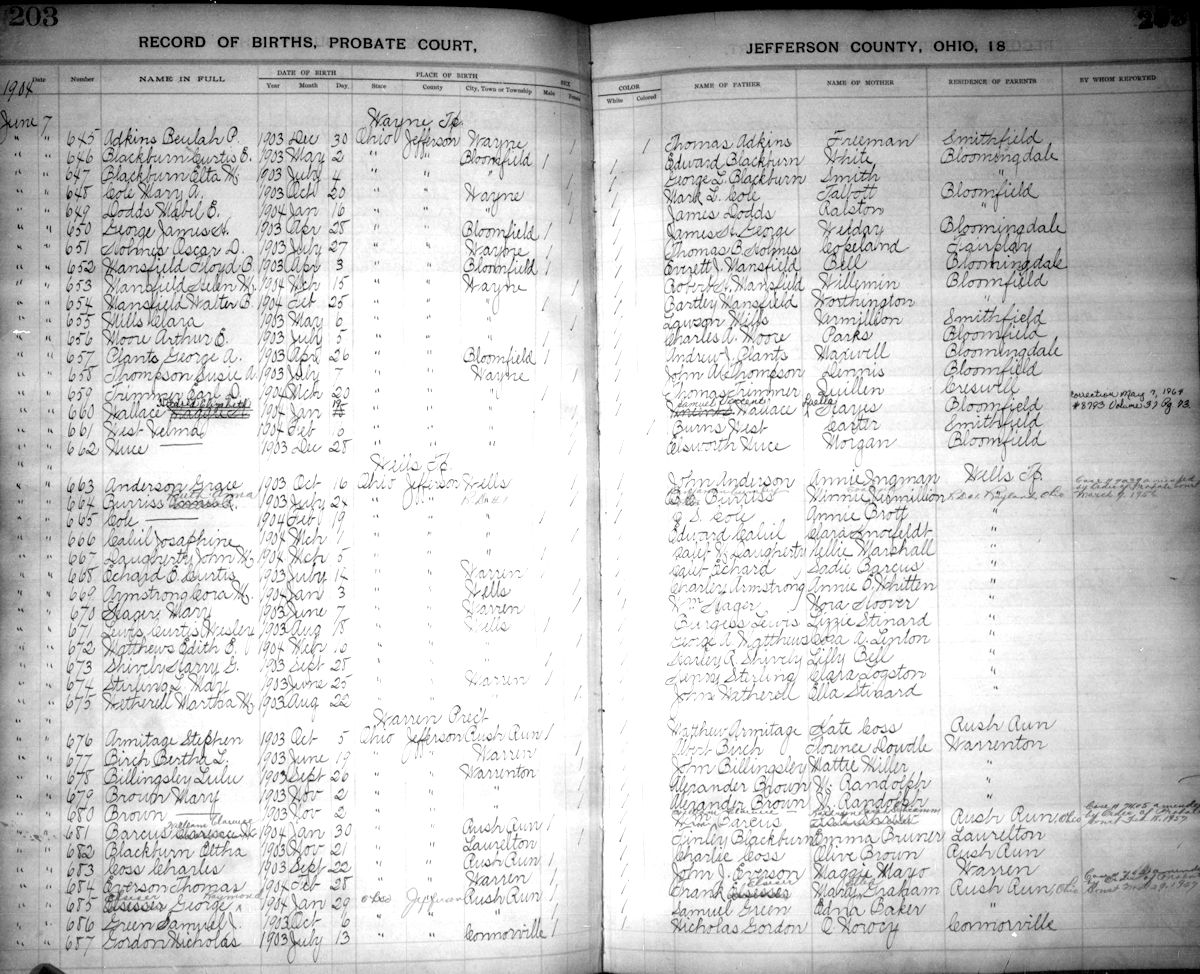 203
RECORD OF BIRTHS, PROBATE COURT, JEFFERSON COUNTY, OHIO, 18
Date Number NAME IN FULL DATE OF BIRTH Year Month Day PLACE OF BIRTH State County City, Town or Township SEX Male Female COLOR White Colored NAME OF FATHER NAME OF MOTHER RESIDENCE OF PARENTS BY WHOM REPORTED
1904
June 7 Wayne Tp.
" " 645 Adkins Beulah P. 1903 Dec 30 Ohio Jefferson Wayne 1 1 Thomas Adkins Freeman Smithfield
" " 646 Blackburn Curtis E. 1903 May 2 " " Bloomfield 1 1 Edward Blackburn White Bloomingdale
" " 647 Blackburn Elta M. 1903 July 4 " " " 1 1 George L. Blackburn Smith "
" " 648 Cole Mary A. 1903 Oct 20 " " Wayne 1 1 Mark L. Cole Talbott Bloomfield
" " 649 Dodds Mabel E. 1904 Jan 16 " " " 1 1 James Dodds Ralston "
" " 650 George James H. 1903 Apr 28 " " Bloomfield 1 1 James H. George Weday Bloomingdale
" " 651 Holmes Oscar D. 1903 July 27 " " Wayne 1 1 Thomas B. Holmes Copeland Fairplay
" " 652 Mansfield Floyd B. 1903 Apr 3 " " Bloomfield 1 1 Everett J. Mansfield Bell Bloomingdale
" " 653 Mansfield Helen M. 1904 Mch 15 " " Wayne 1 1 Robert A. Mansfield Willymin Bloomfield
" " 654 Mansfield Walter B. 1904 Feb 25 " " " 1 1 Bartley Mansfield Worthington "
" " 655 Mills Clara 1903 May 6 " " " 1 1 Lawson Mills Vermillion Smithfield
" " 656 Moore Arthur E. 1903 July 5 " " " 1 1 Charles A. Moore Parks Bloomfield
" " 657 Plants George A. 1903 Apr 26 " " Bloomfield 1 1 Andrew J. Plants Maxwell Bloomingdale
" " 658 Thompson Susie A. 1903 July 7 " " Wayne 1 1 John A. Thompson Dennis Bloomfield
" " 659 Trimmer Earl D. 1904 Mch 29 " " " 1 1 Thomas Trimmer Quillen Creswell
" " 660 Wallace Elizabeth 1904 Jan " " " 1 1 Samuel Wallace Bloomfield Correction May 7, 1964 #8793 Volume 37 Pg 93
" " 661 West Velma 1904 Feb 10 " " " 1 1 Burns West Carter Smithfield
" " 662 Huce 1903 Dec 28 " " " 1 1 Elsworth Huce Morgan Bloomfield
" " Wells Tp. Wells Tp.
" " 663 Anderson Grace 1903 Oct 16 Ohio Jefferson Wells 1 1 John Anderson Annie Ingman
" " 664 Burriss Ruth Anna 1903 July 24 " " 1 1 Burriss Minnie Vermillion March 9, 1956
" " 665 Cole 1904 Feb 19 " " 1 1 Cole Annie Brott "
" " 666 Cahil Josephine 1904 Mch 1 " " 1 1 Edward Cahil Clara "
" " 667 Daugherty John M. 1904 Mch 5 " " 1 1 Daugherty Nellie Marshall "
" " 668 Echard E. Curtis 1903 July 14 " " Warren 1 1 Echard Sadie Barcus "
" " 669 Armstrong Cora M. 1904 Jan 3 " " Wells 1 1 Charley Armstrong Annie E. Whitten "
" " 670 Heager Mary 1903 June 7 " " Warren 1 1 Wm Heager Nora Hoover "
" " 671 Lewis Curtis Wesley 1903 Aug 18 " " Wells 1 1 Burgess Lewis Lizzie Stenard "
" " 672 Matthews Edith E. 1904 Mch 10 " " 1 1 George A. Matthews Cora A. Linton "
" " 673 Shively Harry G. 1903 Sept 28 " " " 1 1 Harley R. Shively Lilly Bell "
" " 674 Sterling L. May 1903 June 25 " " Warren 1 1 Henry Sterling Clara Logston "
" " 675 Wetherell Martha M. 1903 Aug 22 1 1 John Wetherell Ella Stenard "
" " Warren Prect
" " 676 Armitage Stephen 1903 Oct 5 Ohio Jefferson Rush Run 1 1 Matthew Armitage Kate Coss Rush Run
" " 677 Birch Bertha L. 1903 June 19 " " Warren 1 1 Albert Birch Florence Dowdle Warrenton
" " 678 Billingsley Lulu 1903 Sept 26 " " Warrenton 1 1 John Billingsley Mattie Miller "
" " 679 Brown Mary 1903 Nov 2 " " " 1 1 Alexander Brown W. Randolph "
" " 680 Brown 1903 Nov 2 " " " 1 1 Alexander Brown W. Randolph "
" " 681 Barcus William Clarence 1904 Jan 30 " " Rush Run 1 1 Barcus Rush Run, Ohio Case # 7405 amended by Order of Probate Court Feb 18, 1957
" " 682 Blackburn Eltha 1903 Nov 21 " " Laurelton 1 1 Finley Blackburn Emma Bruner Laurelton
" " 683 Coss Charles 1903 Sept 22 " " Rush Run 1 1 Charlie Coss Olive Brown Rush Run
" " 684 Everson Thomas 1904 Feb 28 " " Warren 1 1 John J. Everson Maggie Mayo Warren
" " 685 George Raymond 1904 Jan 29 Ohio Jefferson Rush Run 1 1 Frank Mabel Graham Rush Run, Ohio
" " 686 Green Samuel J. 1903 Oct 6 " " " 1 1 Samuel Green Edna Baker "
" " 687 Gordon Nicholas 1903 July 13 " " Connorville 1 1 Nicholas Gordon Connorville